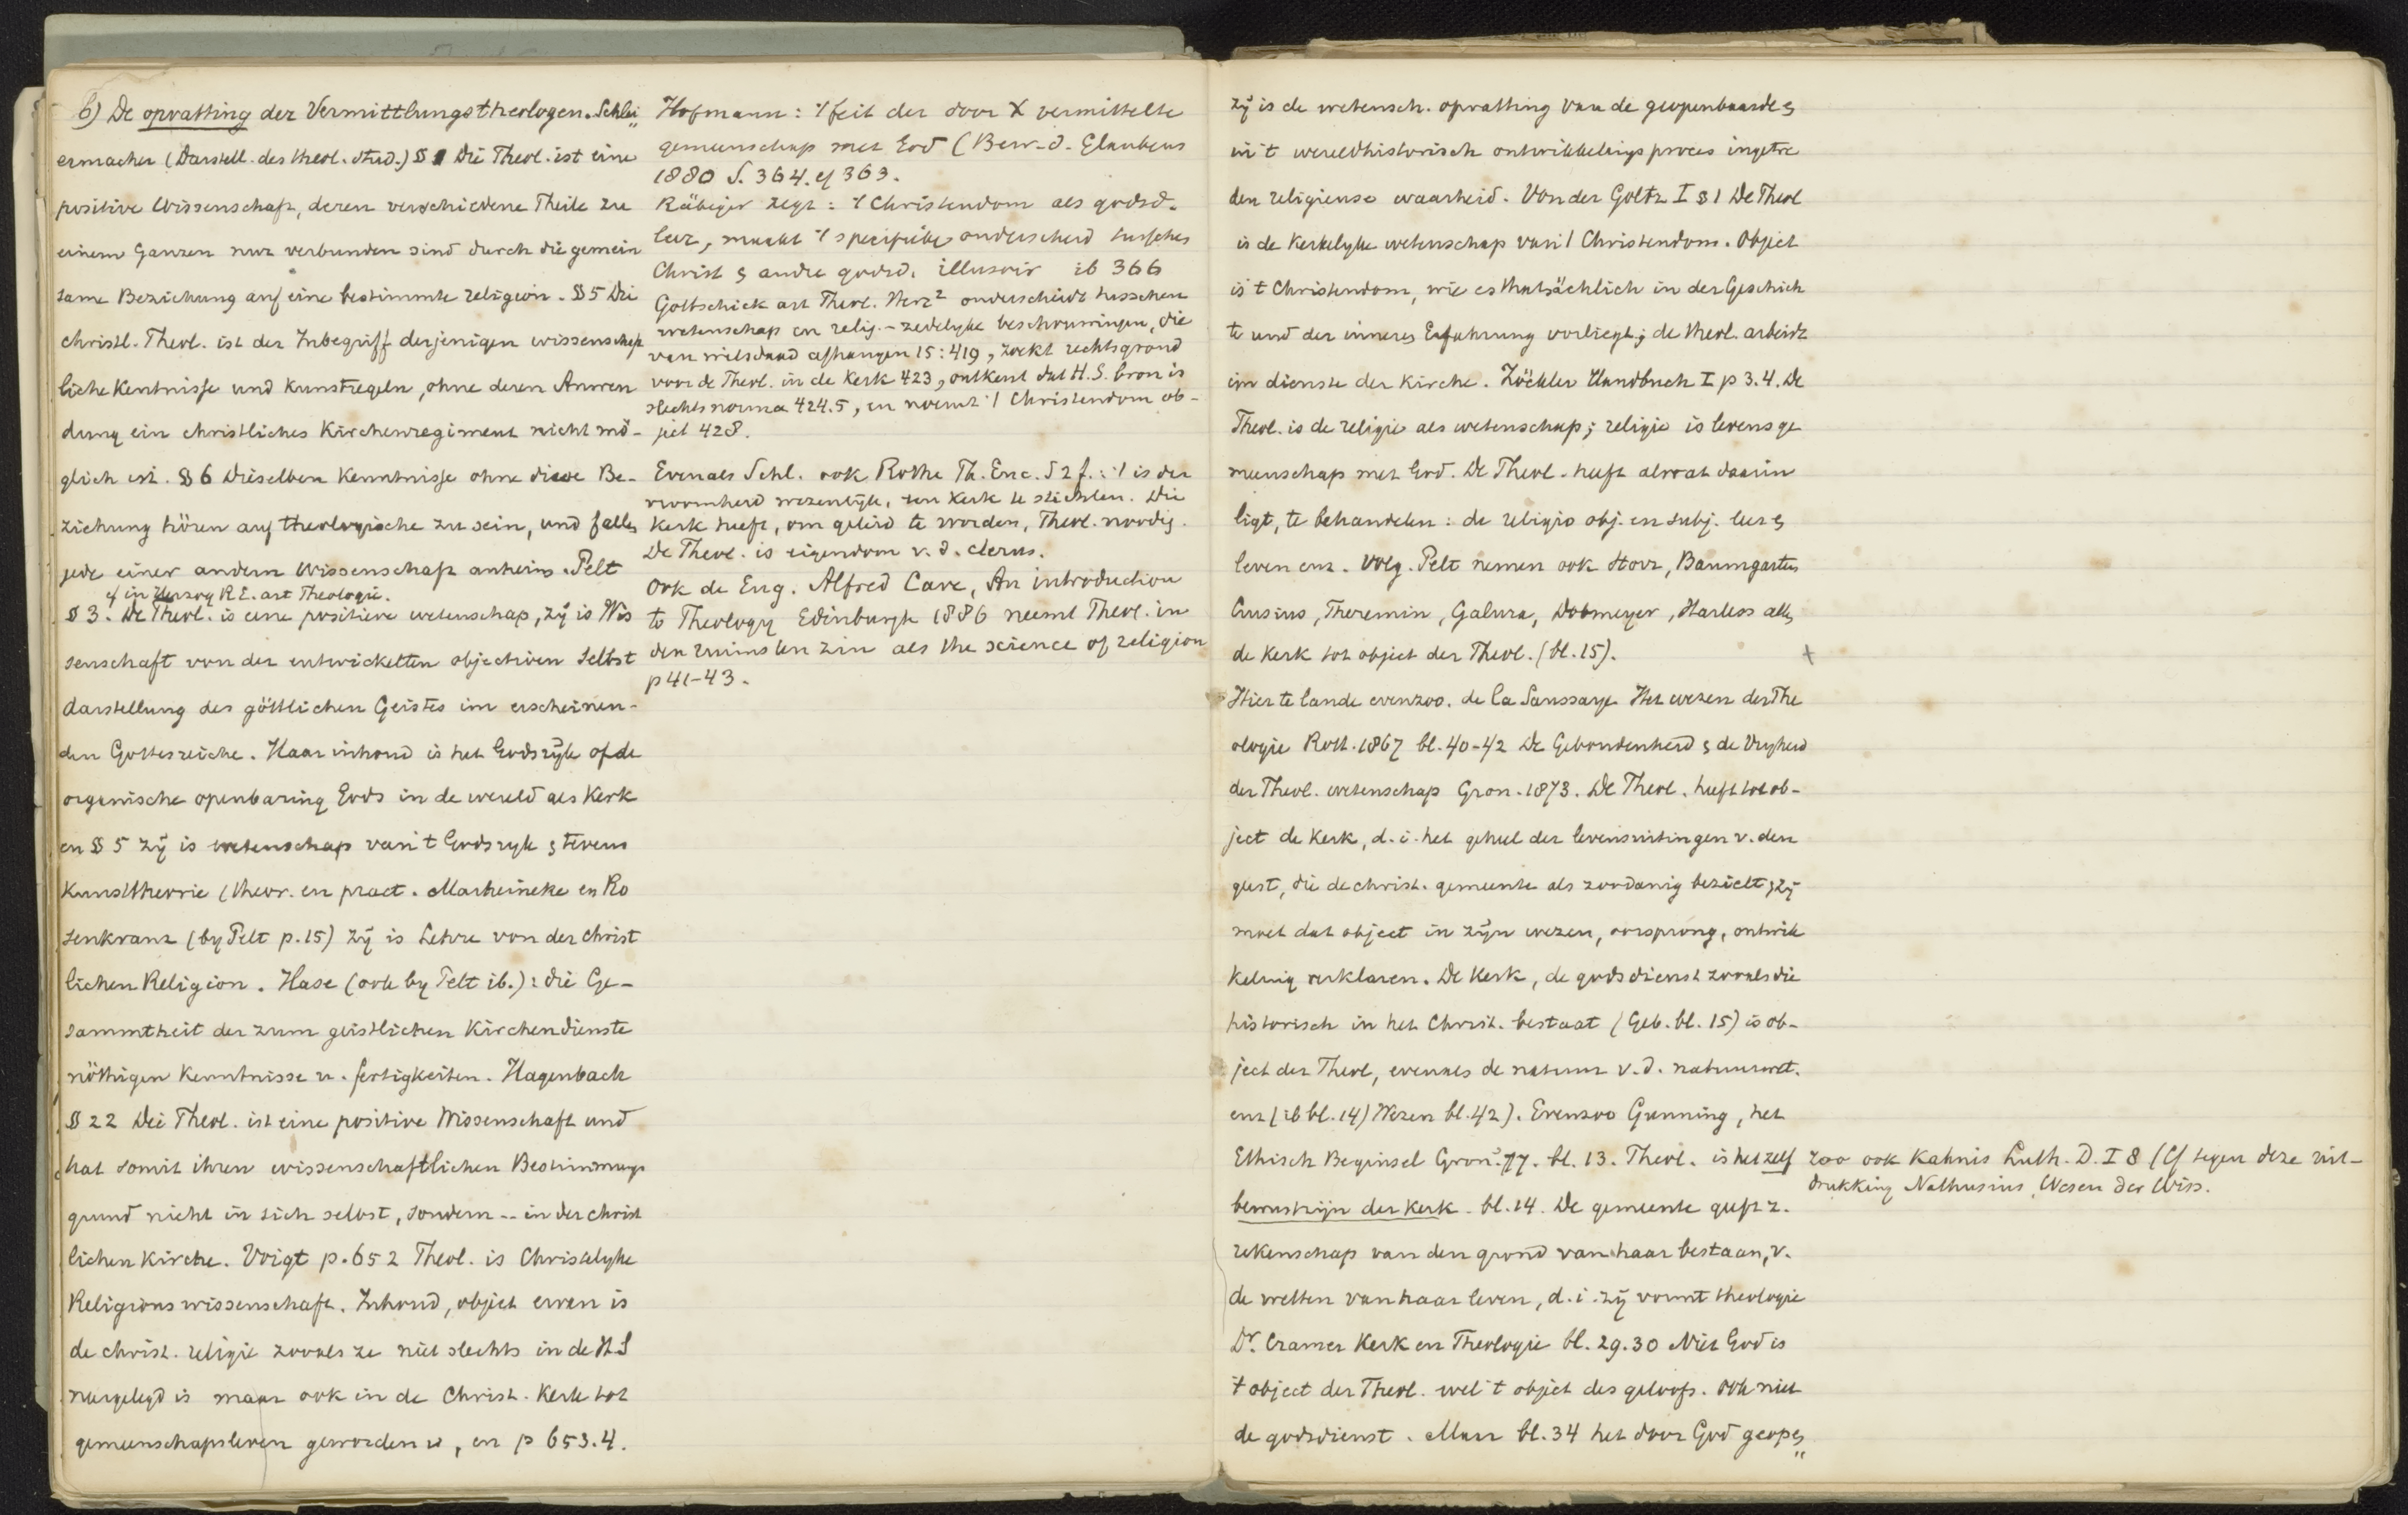 b) De opvatting der Vermittlungstheologen. Schlei„
ermacher (Darstell. des theol. Stud.) § 1 Die Theol. ist eine
positive Wissenschaft, deren verschiedene Theile zu
einem Ganzen nur verbunden sind durch die gemein
same Beziehung auf eine bestimmte Religion. § 5 Die
christl. Theol. ist der Inbegriff derjenigen wissenschaft
liche Kentnisse und Kunstregeln, ohne deren Anwen
dung ein christliches Kirchenregiment nicht mö-
glich ist. § 6 Dieselben Kenntnisse ohne diese Be-
ziehung hören auf theologische zu sein, und fallen
jede einer andern Wissenschaft anheim. Pelt
cf in Herzog R.E. art Theologie.
§ 3. De Theol. is eene positieve wetenschap, zij is Wis
senschaft von der entwickelten objectiven Selbst
darstellung des göttlichen Geistes im erscheinen-
den Gottesreiche. Haar inhoud is het Godsrijk of de
organische openbaring Gods in de wereld als Kerk
en § 5 zij is wetenschap van 't Godsryk & tevens
Kunsttheorie (theor. en pract. Marheineke en Ro
senkranz (by Pelt p. 15) zij is Lehre von der christ
lichen Religion. Hase (ook by Pelt ib.): die Ge-
sammtheit der zum geistlichen Kirchendienste
nöthigen Kenntnisse u. fertigkeiten. Hagenbach
§ 22 Die Theol. ist eine positive Wissenschaft und
hat somit ihren wissenschaftlichen Bestimmungs
grund nicht in sich selbst, sondern -- in der christ
lichen Kirche. Voigt p. 652 Theol. is Christelyke
Religionswissenschaft. Inhoud, object ervan is
de christ. religie zooals ze niet slechts in de H S
neergelegd is maar ook in de Christ. Kerk tot
gemeenschapsleven geworden is, en p 653.4.
Hofmann: 't feit der door X vermittelte
gemeenschap met God (Bew. d. Glaubens
1880 S. 364. cf 363.
Räbiger zegt: 't Christendom als godsd.
leer, maakt 't specifieke onderscheid tusschen
Christ & andre godsd. illusoir ib 366
Gottschick art Theol. Herz² onderscheidt tusschen
wetenschap en relig.-zedelyke beschouwingen, die
van wilsdaad afhangen 15:419, zoekt rechtsgrond
voor de Theol. in de Kerk 423, ontkent dat H.S. bron is
slechts norma 424.5, en noemt 't Christendom ob-
ject 428.
Evenals Schl. ook Rothe Th. Enc. S 2 f.: 't is der
vroomheid wezenlijk, een Kerk te stichten. Die
Kerk heeft, om geleid te worden, Theol. noodig.
De Theol. is eigendom v. d. clerus.
Ook de Eng. Alfred Cave, An introduction
to Theology Edinburgh 1886 neemt Theol. in
den ruimsten zin als the science of religion
p 41-43.
Zij is de wetensch. opvatting van de geopenbaarde &
in 't wereldhistorisch ontwikkelingsproces ingetre
den religieuse waarheid. Von der Goltz I § 1 De Theol
is de Kerkelyke wetenschap van 't Christendom. Object
is 't Christendom, wie es thatsächlich in der Geschich
te und der inneren Erfahrung vorliegt; de theol. arbeidt
im dienste der Kirche. Zöckler Handbuch I p 3.4. De
Theol. is de religie als wetenschap; religie is levensge
meenschap met God. De Theol. heeft al wat daarin
ligt, te behandelen: de religio obj. en subj. leer &
leven enz. Volg. Pelt nemen ook Storr, Baumgarten
Crusius, Theremin, Galura, Dobmeyer, Harless allen
de Kerk tot object der Theol. (bl. 15). +
Hier te lande evenzoo. de la Saussaye Het wezen der The
ologie Rott. 1867 bl. 40-42 De Gebondenheid & de Vryheid
der Theol. wetenschap Gron. 1873. De Theol. heeft tot ob-
ject de Kerk, d. i. het geheel der levensuitingen v. den
geest, die de christ. gemeente als zoodanig bezielt; zij
moet dat object in zijn wezen, oorsprong, ontwik
keling verklaren. De Kerk, de godsdienst zooals die
historisch in het Christ. bestaat (Geb. bl. 15) is ob-
ject der Theol, evenals de natuur v. d. natuurwet.
enz (ib bl. 14) Wezen bl. 42). Evenzoo Gunning, het
Ethisch Beginsel Gron. 77. bl. 13. Theol. is het zelf
bewustzijn der Kerk. bl. 14. De gemeente geeft z.
rekenschap van den grond van haar bestaan, v.
de wetten van haar leven, d. i. zij vormt theologie
Dr. Cramer Kerk en Theologie bl. 29.30 Niet God is
't object der Theol. wel 't object des geloofs. Ook niet
de godsdienst. Maar bl. 34 het door God geopen„
Zoo ook Kahnis Luth. D. I 8 (Cf tegen deze uit-
drukking Nathusius, Wesen der Wiss.